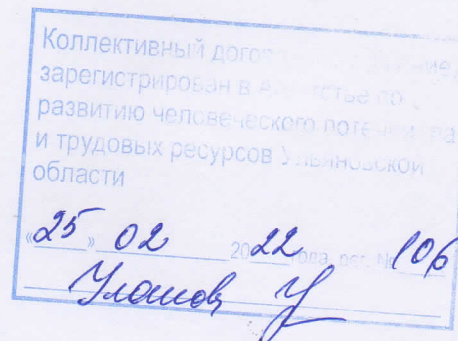 Коллективный
зарегистрирован в
развитию человеческого
и трудовых ресурсов Ульяновской
области
«25» 02 2022 года, рег. № 106